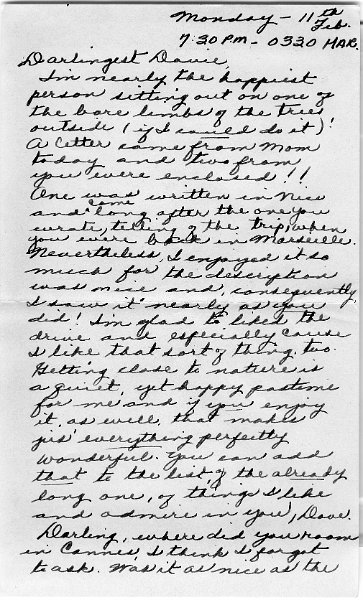 Monday - 11th Feb.
7:30 P.M. - 0330 MAR.
Darlingest Dave,
I'm nearly the happiest
person sitting out on one of
the bare limbs of the trees
outside (if I could do it)!
A letter came from Mom
today and two from
you were enclosed!!
One was written in Nice
and came long after the one you
wrote, telling of the trip, when
you were back in Marseille.
Nevertheless, I enjoyed it so
much for the description
was nice and, consequently
I saw it nearly as you
did! I'm glad to liked the
drive and especially cause
I like that sort of thing, too.
Getting close to nature is
a quiet, yet happy pastime
for me and if you enjoy
it, as well, that makes
jis' everything perfectly
wonderful. You can add
that to the list, of the already
long one, of things I like
and admire in you, Dave.
Darling, where did you room
in Cannes, I think I forgot
to ask. Was it as nice as the